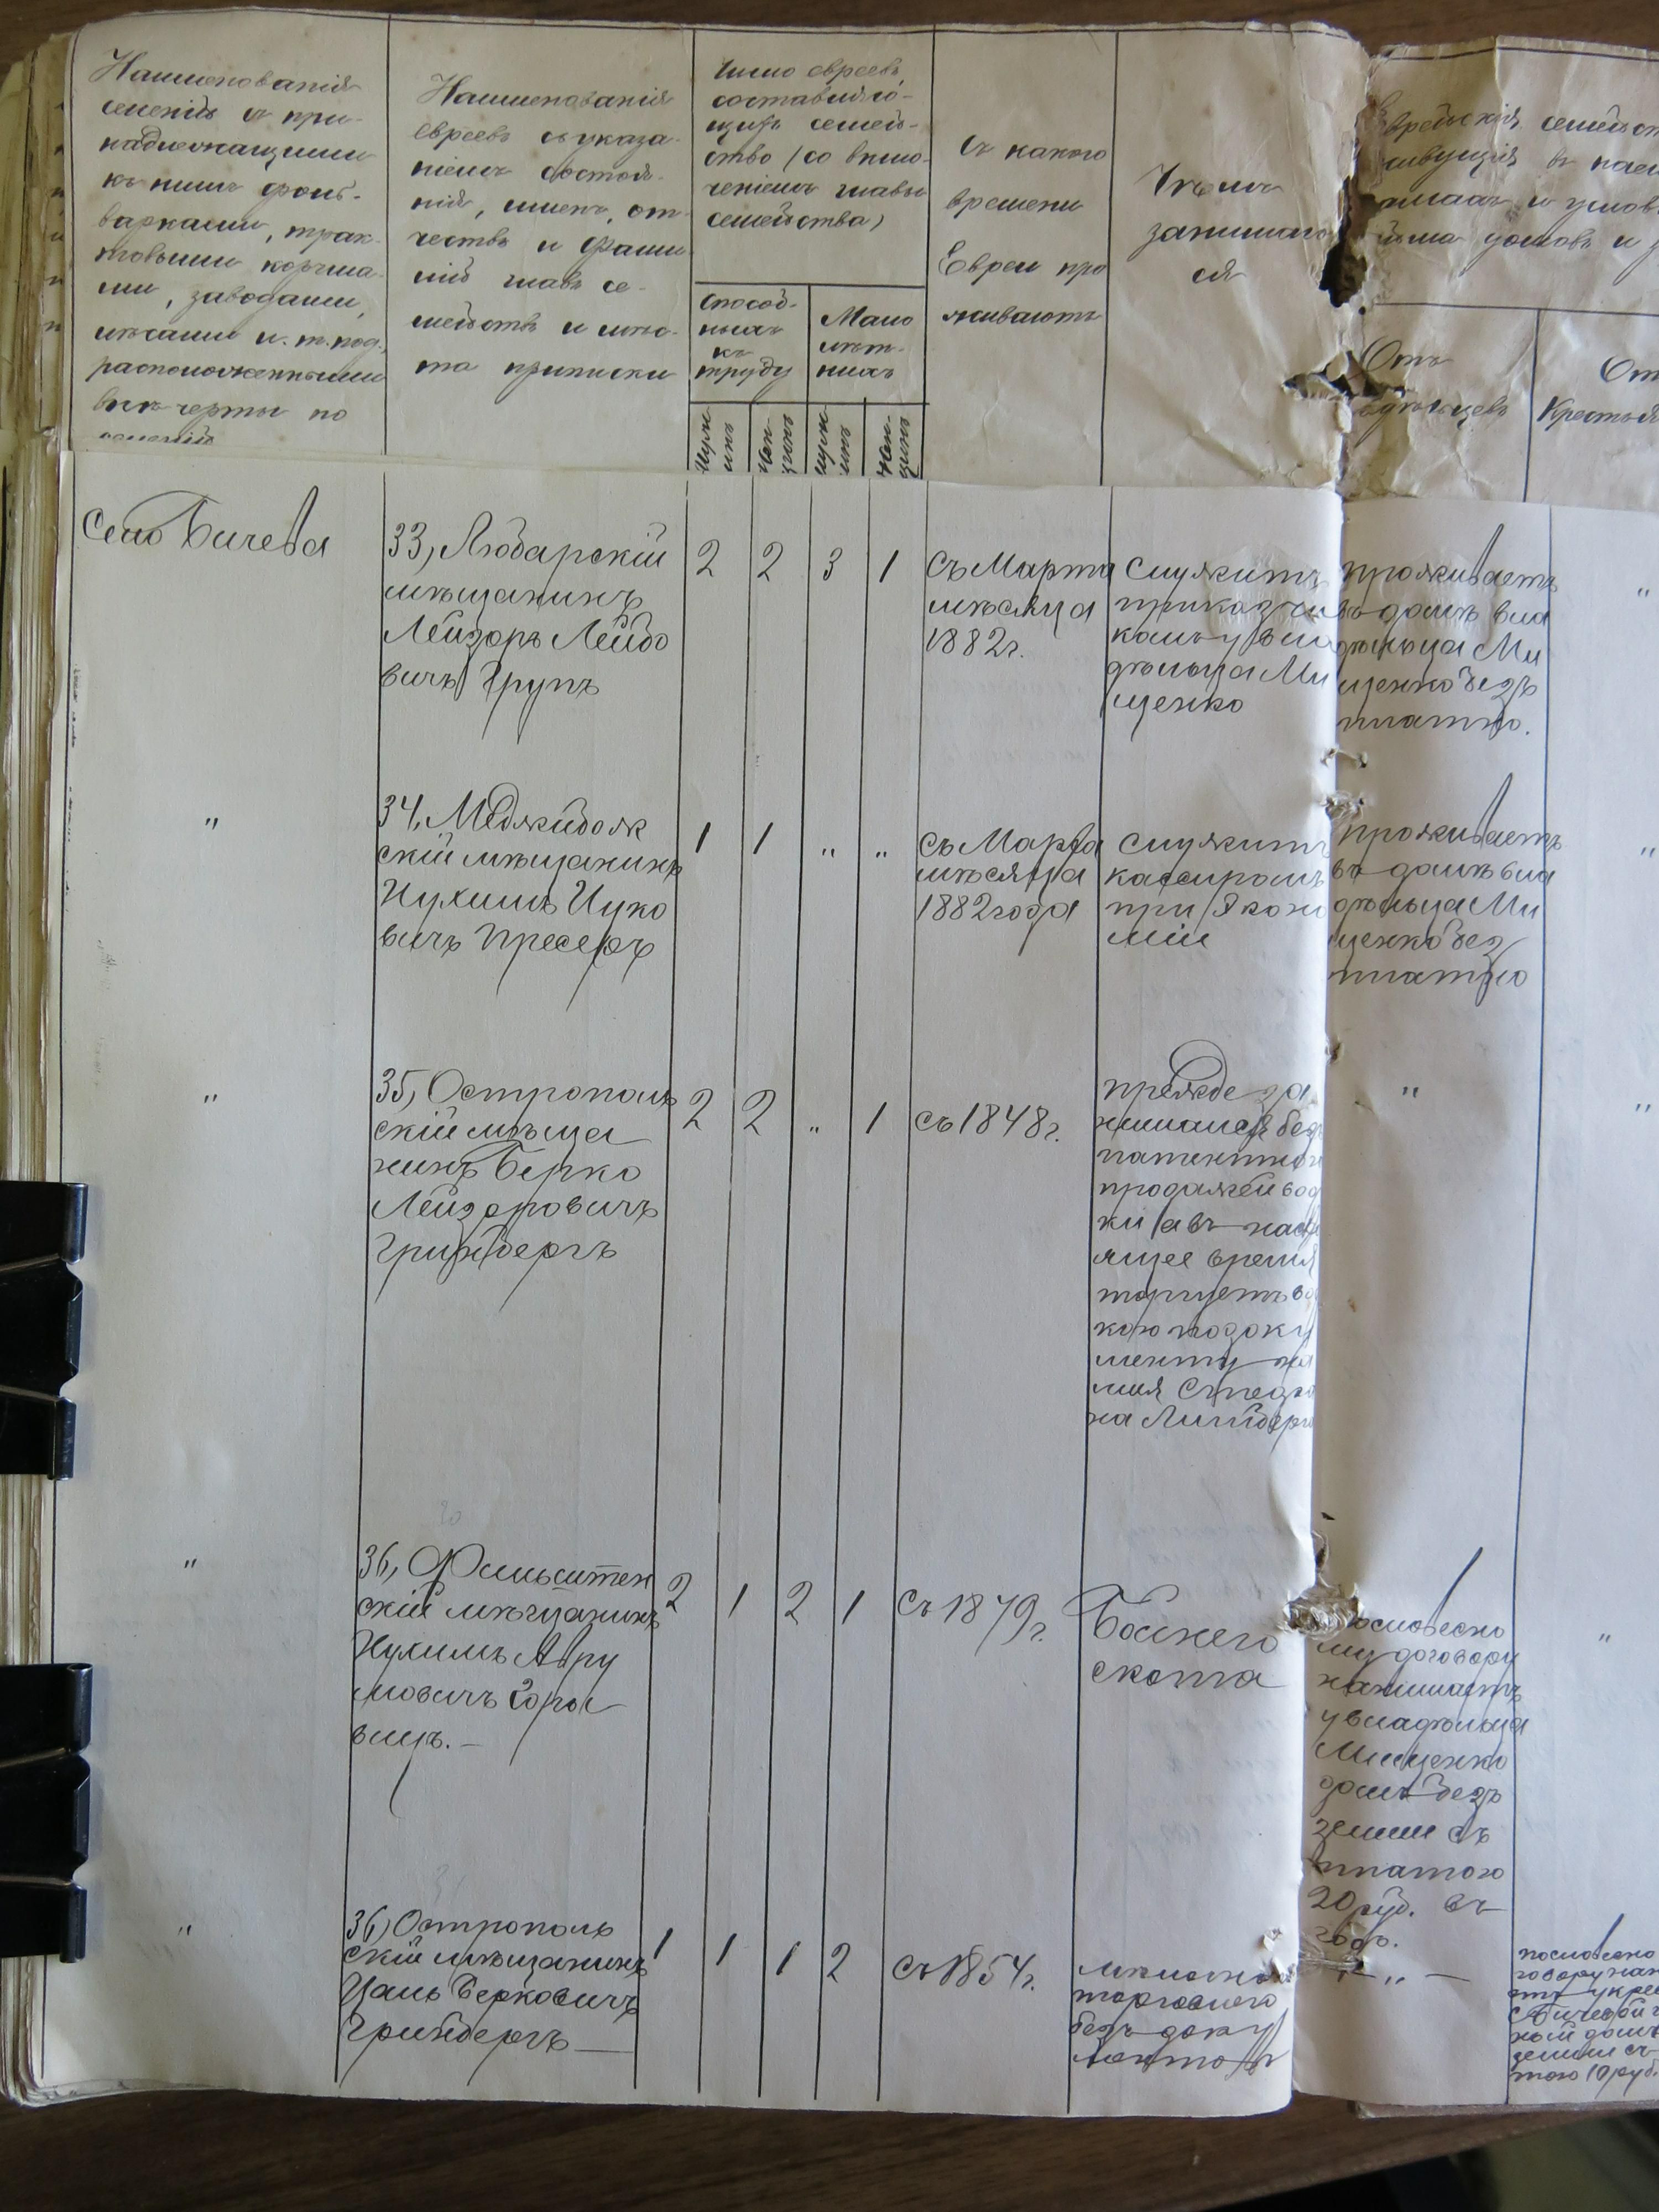 Наименованія
селеній и при-
надлежащими
къ нимъ фоль-
варками, трак-
товыми корчма-
ми, заводами,
лѣсами и. т. под.,
расположенными
внѣ черты по
селеній
Наименованія
евреевъ съ указа-
ніемъ состоя-
нія, именъ, от-
чествъ и фами
лій главъ се-
мействъ и мѣс-
та приписки
Число евреевъ,
составляю-
щихъ семей-
ство (со вклю-
ченіемъ главы
семейства)
Способ-
ныхъ
къ
труду
Мало
лѣт-
нихъ
Муж
чинъ
Жен-
щинъ
муж
чинъ
Жен-
щинъ
Съ какого
времени
Евреи про
живаютъ
Чѣмъ
занимаю
ся
Еврейскія семейст
живущія въ
и услов
домовъ и з
Отъ
Отъ
Крестья
Село Бичева
33, Любарскій
мѣщанинъ
Лейзоръ Лейбо
вичъ Групъ
2 2 3 1
Съ Марта
мѣсяца
1882 г.
Служитъ
приказчи
комъ у вла
дѣльца Ми
щенко
проживаетъ
въ домѣ вла
дѣльца Ми
щенко безъ
платно.
"
"
34, Меджибож
скій мѣщанинъ
Нухимъ Ицко
вичъ Пресеръ
1 1 " "
съ Марта
мѣсяца
1882 года
служитъ
кассиромъ
при Эконо
міи
проживаетъ
въ домѣ вла
дѣльца Ми
щенко без
платно
"
"
35, Острополь
скій мѣща
нинъ Берко
Лейзеровичъ
Гринбергъ
2 2 " 1
съ 1848 г.
прежде за
нимался без
патентной
продажей вод
ки а въ наст
ящее время
торгуетъ во
кою по доку
менту на
имя
на
"
"
"
36, Фельштен
скій мѣщанинъ
Нухимъ Авру
мовичъ Горо
вицъ. —
2 1 2 1
съ 1879 г.
Бойнего
скота
пословесно
му договору
нанимаетъ
у владѣльца
Мищенко
домъ безъ
земли съ
платою
20 руб. въ
годъ.
"
"
36, Острополь
скій мѣщанинъ
Цаль Берковичъ
Гринбергъ —
1 1 1 2
съ 1854 г.
мѣлочною
торговлею
безъ доку
ментовъ
— „ —
пословесно
говору нан
етъ у крес
с. Бичевой
ный домъ
земли съ
тою 10 руб.